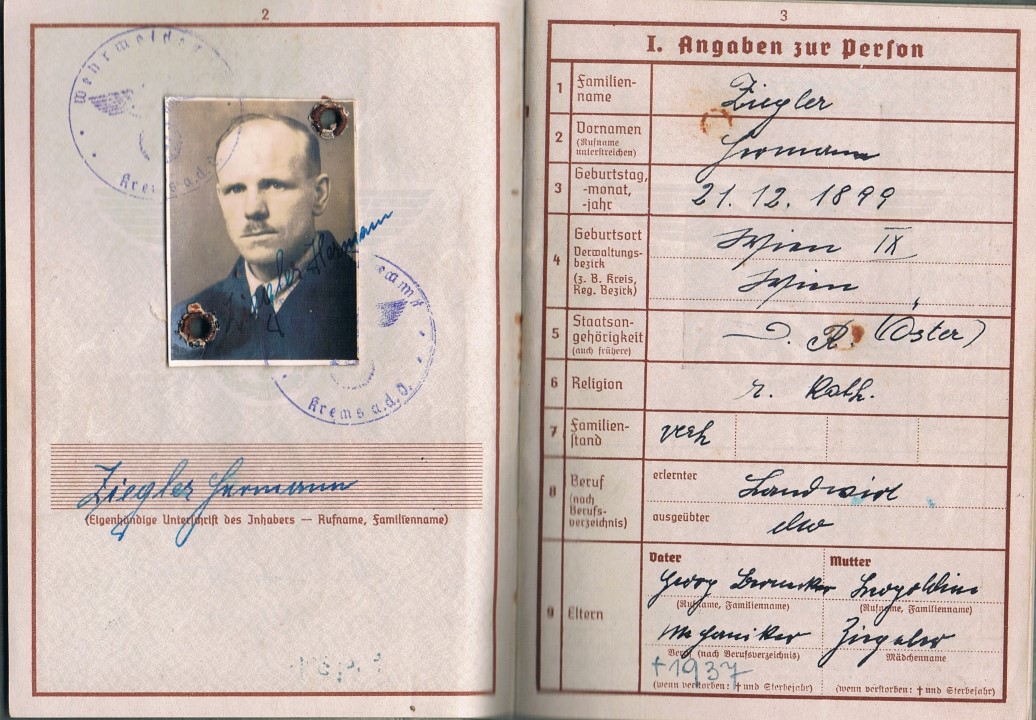 2
Wehrmelde
Krems a.d.D.
Ziegler Hermann
Krems a.d.D.
Ziegler Hermann
(Eigenhändige Unterschrift des Inhabers — Rufname, Familienname)
3
I. Angaben zur Person
1 Familien-
name
Ziegler
2 Vornamen
(Rufname
unterstreichen)
Hermann
3 Geburtstag,
-monat,
-jahr
21. 12. 1899
4 Geburtsort
Verwaltungs-
bezirk
(z. B. Kreis,
Reg. Bezirk)
Wien IX
Wien
5 Staatsan-
gehörigkeit
(auch frühere)
D. R. (Öster)
6 Religion
r. kath.
7 Familien-
stand
verh
8 Beruf
(nach
Berufs-
verzeichnis)
erlernter
Landwirt
ausgeübter
dto
9 Eltern
Vater
Mutter
Georg
Leopoldine
(Rufname, Familienname)
(Rufname, Familienname)
Mechaniker
Ziegler
Beruf (nach Berufsverzeichnis)
Mädchenname
†1937
(wenn verstorben: † und Sterbejahr)
(wenn verstorben: † und Sterbejahr)